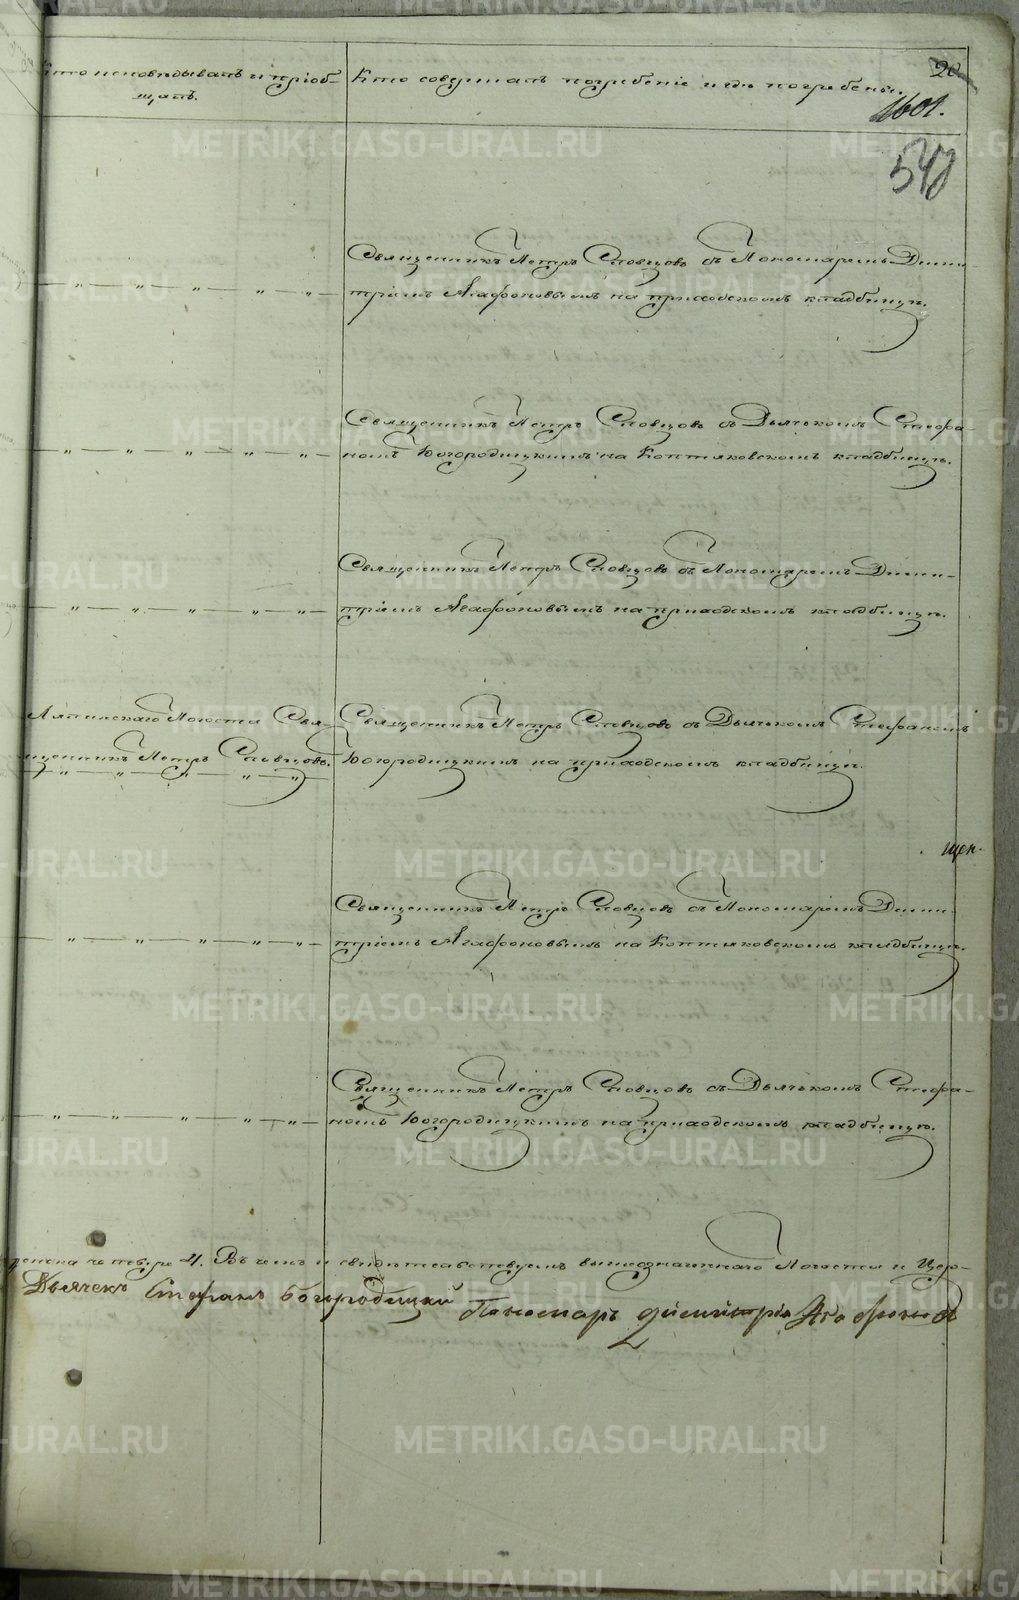 Кто исповѣдывалъ и пріоб-
щалъ.
Кто совершалъ погребеніе и гдѣ погребены.
20
1601.
548
Священникъ Петръ Словцовъ съ Пономаремъ Дими-
тріемъ Агафоновымъ на приходскомъ кладбищѣ.
Священникъ Петръ Словцовъ съ Дьячькомъ Стефа-
номъ Богородицкимъ на Коптяковскомъ кладбищѣ.
Священникъ Петръ Словцовъ съ Пономаремъ Дими-
тріемъ Агафоновымъ на приходскомъ кладбищѣ.
Ляпинскаго Погоста Свя-
щенникъ Петръ Словцовъ.
Священникъ Петръ Словцовъ съ Дьячькомъ Стефаномъ
Богородицкимъ на приходскомъ кладбищѣ.
щен-
Священникъ Петръ Словцовъ съ Пономаремъ Дими-
тріемъ Агафоновымъ на Коптяковскомъ кладбищѣ.
Священникъ Петръ Словцовъ съ Дьячькомъ Стефа-
номъ Богородицкимъ на приходскомъ кладбищѣ.
женска четыре 4. Въ чемъ и свидѣтельствуемъ вышеозначеннаго Погоста и Цер-
Дьячекъ Стефанъ Богородицкій Пономарь Димитрій Агафоновъ
METRIKI.GASO-URAL.RU